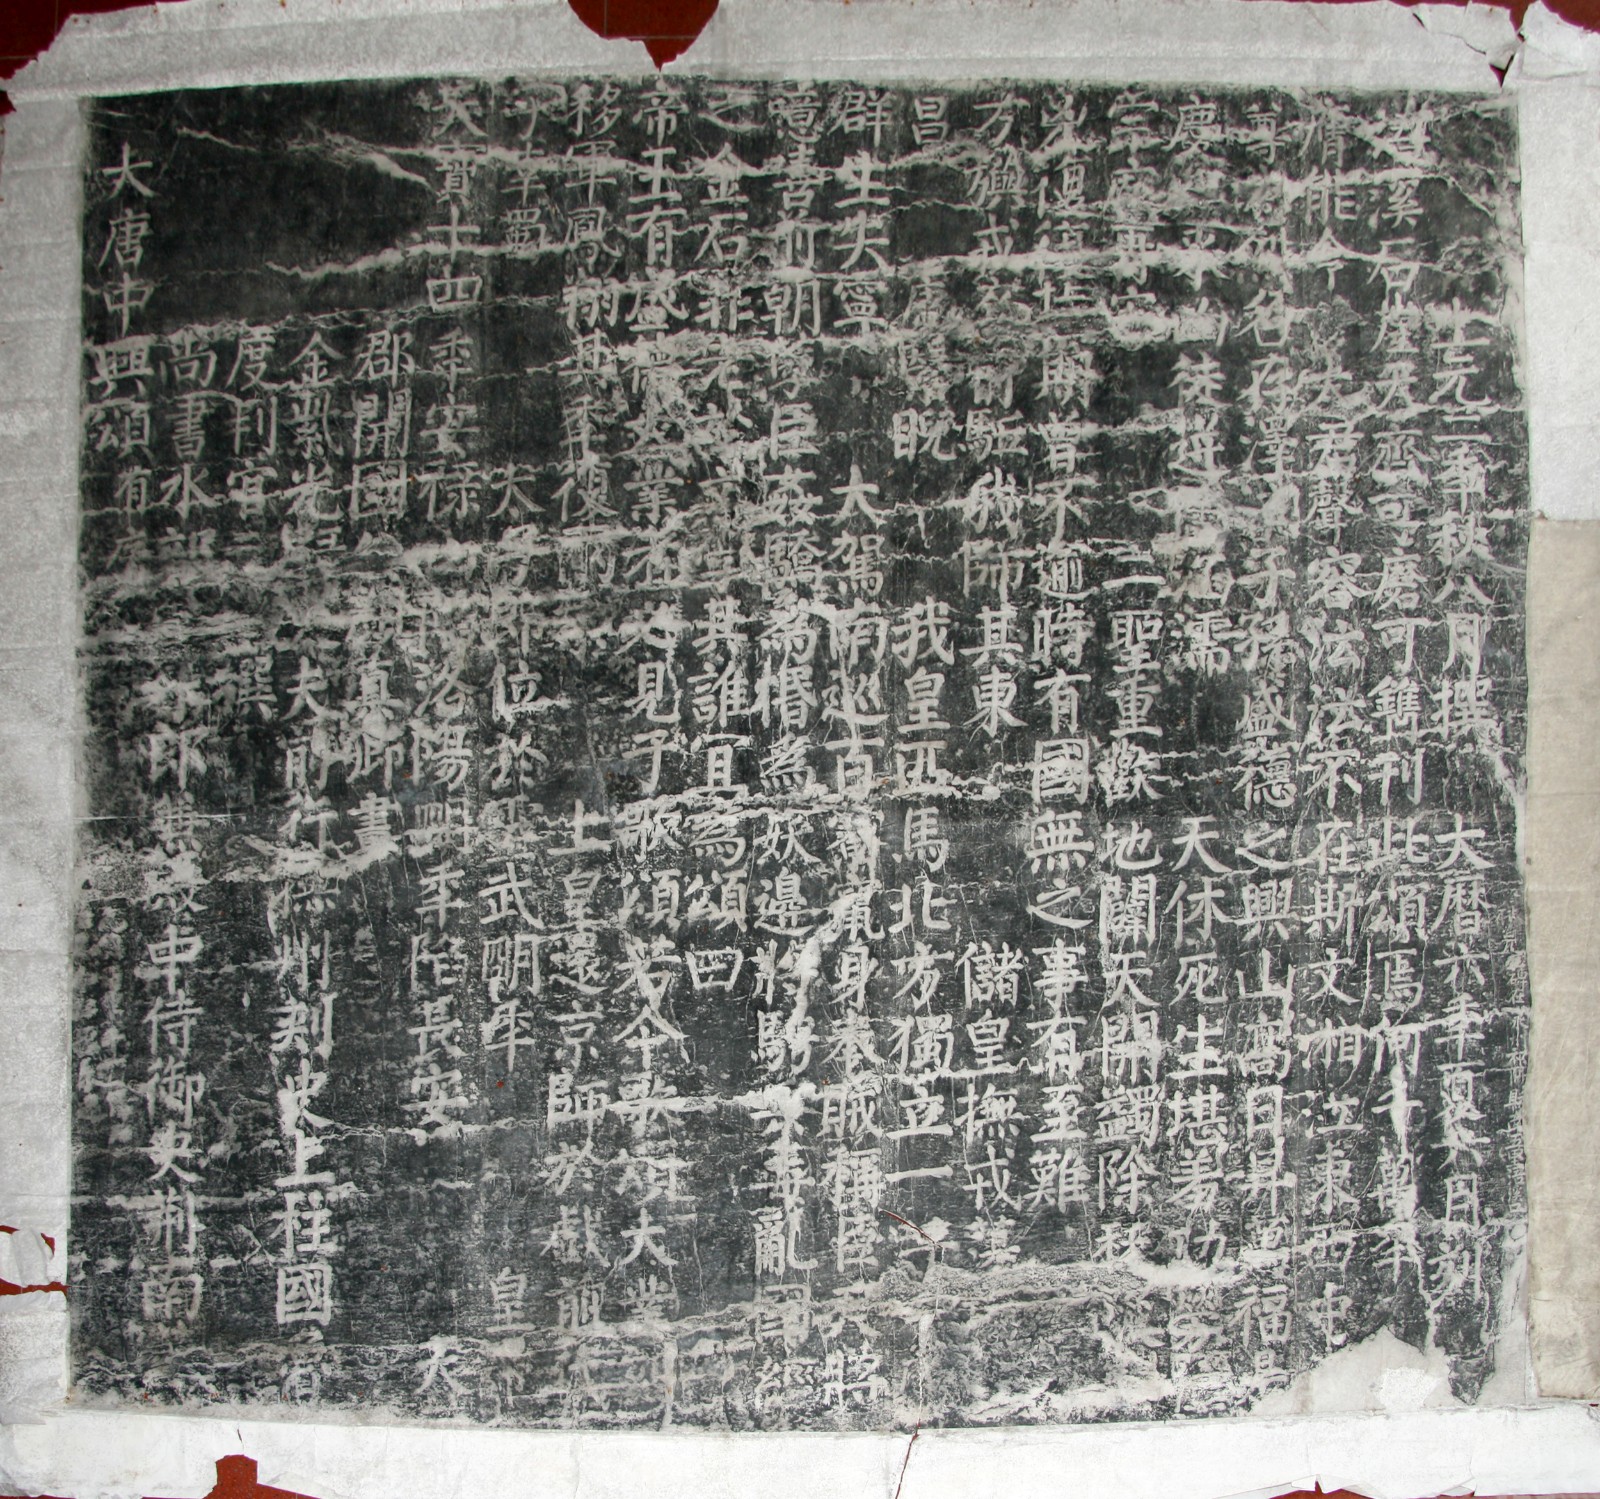 大唐中興頌有序
尚書水部郎兼殿中侍御史荆南
度判官撰
金紫光大夫前行撫州刺史上柱國
郡開國公真卿書
天寶十四年安祿洛陽明年陷長安天
子幸蜀太子即位於靈武明年皇
移軍鳳翔其年復兩上皇還京師於戲前
帝王有盛德大業者必見于歌頌若今歌頌大業刻
之金石非老於其誰宜為頌曰
噫嘻前朝孽臣姦驕為惛為妖邊將騁兵毒亂國經
群生失寧大駕南巡百寮竄身奉賊稱臣將
昌唐繄睨我皇匹馬北方獨立一
方旟戎卒前驅我師其東儲皇撫戎蕩
兇復復指期曾不逾時有國無之事有至難
宗廟再安二聖重歡地闢天開蠲除祅
慶大來兇徒逆儔涵濡天休死生堪羞功勞位
尊忠烈名存澤流子孫盛德之興山高日昇萬福是
膺能令大君聲容沄沄不在斯文湘江東西中
浯溪石崖天齊可磨可鐫刊此頌焉何千萬年
上元二年秋八月撰大曆六年夏六月刻